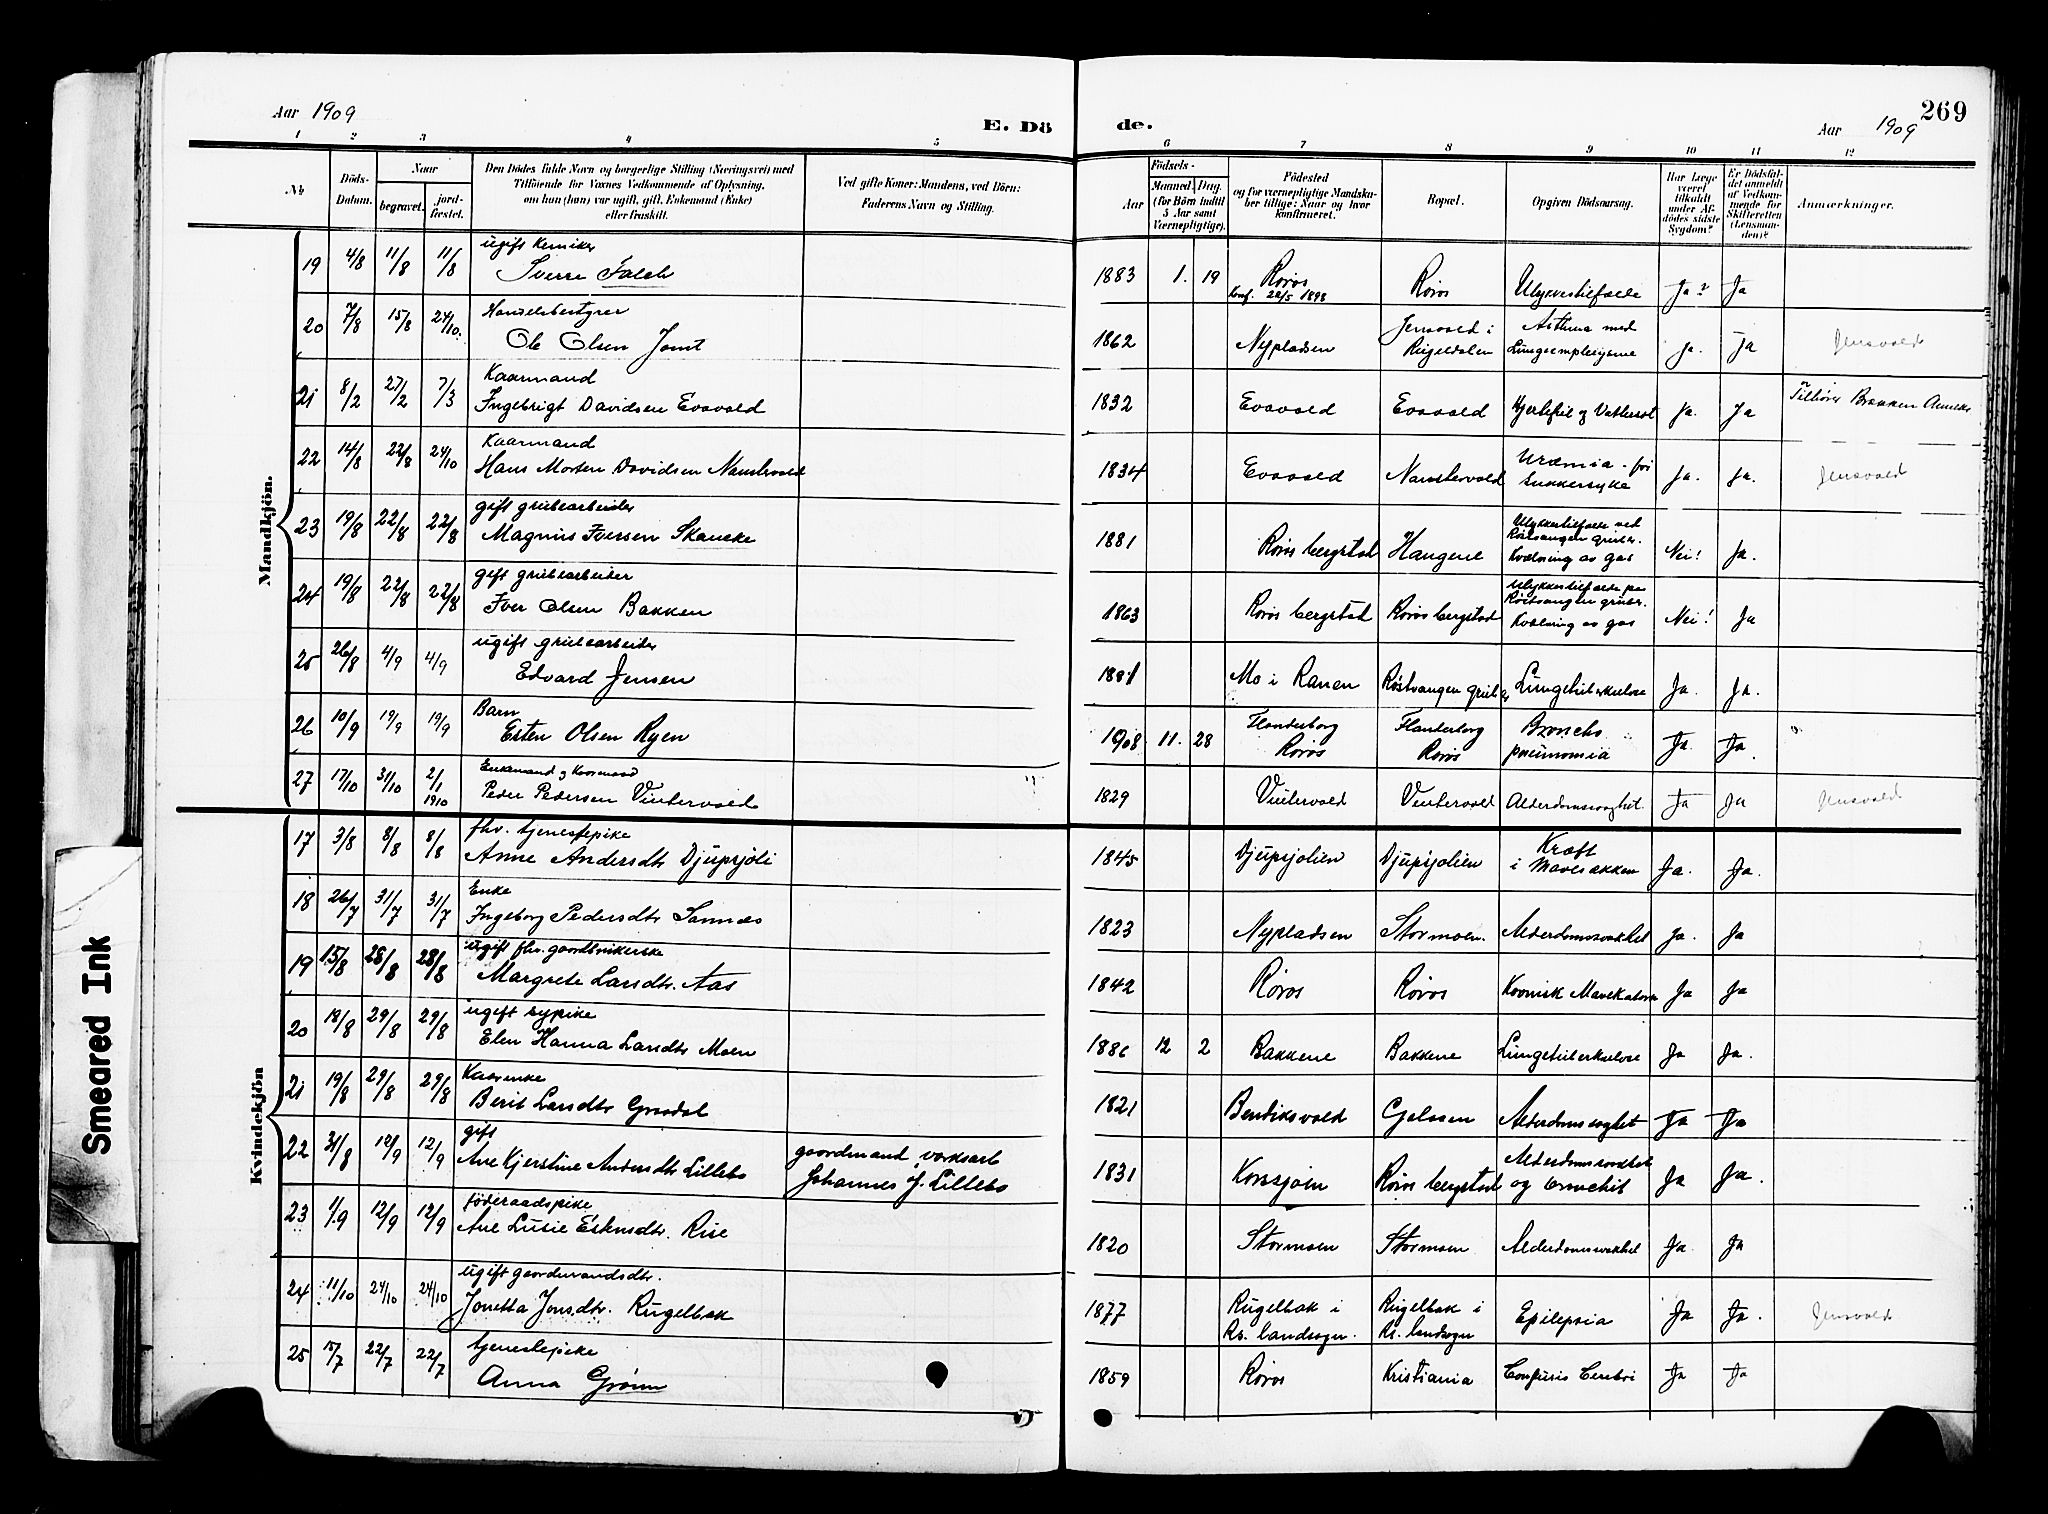 Aar 1909
E. Dö
de.
Aar 1909
269
1 2 3 4 5 6 7 8 9 10 11 12
№
Döds-Datum.
Naar
begravet.
jord-festet.
Den Dödes fulde Navn og borgerlige Stilling (Næringsvei) med
Tilföiende for Voxnes Vedkommende af Oplysning,
om han (hun) var ugift, gift, Enkemand (Enke)
eller fraskilt.
Ved gifte Koner: Mandens, ved Börn:
Faderens Navn og Stilling.
Födsels-
Aar
Maaned. Dag.
(for Börn indtil
5 Aar samt
Værnepligtige).
Födested
og for værnepligtige Mandska-
ber tillige: Naar og hvor
konfirmeret.
Bopæl.
Opgiven Dödsaarsag.
Har Læge
været
tilkaldt
under Af-
dödes sidste
Sygdom?
Er Dödsfal-
det anmeldt
af Vedkom-
mende for
Skifteretten
(Lensman-
den)?
Anmærkninger.
Mandkjön.
19 4/8 11/8 11/8 ugift Kemiker
Sverre Falch 1883 1. 19 Røros Røros Ulykkestilfælde Ja? Ja
Konf. 22/5 1898
20 7/8 15/8 24/10. Handelsbestyrer
Ole Olsen Jamt 1862 Nypladsen Jensvold i Rugeldalen Asthma med Lungeemphysem Ja. Ja Jensvold
21 8/2 27/2 7/3 Kaarmand
Ingebrigt Davidsen Evavold 1832 Evavold Evavold Hjertefeil og Vattersot Ja. Ja Tilhører Brekken Annex
22 14/8 22/8 24/10 Kaarmand
Hans Morten Davidsen Namstervold 1834 Evavold Namstervold Uræmia for Sukkersyke Ja. Ja. Jensvold
23 19/8 22/8 22/8 gift grubearbeider
Magnus Iversen Skancke 1881 Røros bergstad Haugene Ulykkestilfælde ved Røstvangen gruber. Kvælning av gas Nei! Ja.
24 19/8 22/8 22/8 gift grubearbeider
Iver Olsen Bakken 1863 Røros bergstad Røros bergstad Ulykkestilfælde paa Røstvangen gruber. Kvælning av gas Nei! Ja
25 26/8 4/9 4/9 ugift grubearbeider
Edvard Jensen 1881 Mo i Ranen Røstvangen gruber Lungetuberkulose Ja. Ja.
26 10/9 19/9 19/9 Barn
Esten Olsen Ryen 1908 11. 28 Flanderborg Røros Flanderborg Røros Broncho pneumonia Ja. Ja.
27 17/10 31/10 2/1 1910 Enkemand og Kaarmand
Peder Pedersen Vintervold 1829 Vintervold Vintervold Alderdomssvaghet. Ja Ja Jensvold
Kvindekjön
17 3/8 8/8 8/8 fhv. tjenestepike
Anne Andersdtr Djupsjöli 1845 Djupsjölien Djupsjölien Kræft i Mavesækken Ja. Ja.
18 26/7 31/7 31/7 Enke
Ingeborg Pedersdtr Sannæs 1823 Nypladsen Stormoen. Alderdomssvakhet Ja. Ja
19 15/8 28/8 28/8 ugift fhv. gaardbrukerske
Margrete Larsdtr. Aas 1842 Røros Røros Kronisk Mavekatarr Ja Ja
20 19/8 29/8 29/8 ugift sypike
Elen Hanna Larsdtr Moen 1886 12 2 Bakkene Bakkene Lungetuberkulose Ja Ja.
21 19/8 29/8 29/8 Kaarenke
Berit Larsdtr Graadal 1821 Bendiksvold Galaaen Alderdomssvaghet Ja Ja
22 31/8 12/9 12/9 gift
Ane Kjerstine Andersdtr Lillebo gaardmand, verksarb Johannes J. Lillebo 1831 Korssjøen Røros bergstad Alderdomssvakhet og bronchit Ja Ja.
23 1/9 12/9 12/9 föderaadspike
Ane Lusie Eskilsdtr. Rise 1820 Stormoen Stormoen Alderdomssvakhet Ja Ja
24 11/10 24/10 24/10 ugift gaardmandsdtr.
Jonetta Jonsdtr. Rugelbak 1877 Rugelbak i Rr. landsogn. Rugelbak i Rr. landsogn Epilepsia Ja Ja. Jensvold
25 15/7 22/7 22/7 tjenestepike
Anna Grønn 1859 Røros Kristiania Confusio Cerebri Ja Ja
Smeared Ink